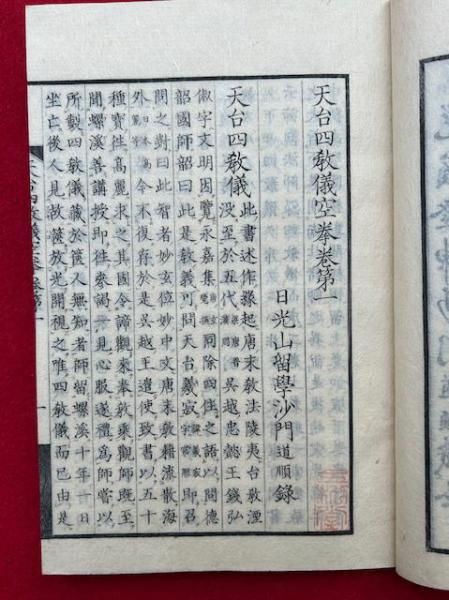 天台四教儀空拳卷第一
日光山留學沙門道順錄
天台四教儀
此書述作起唐末教法陵夷台教湮
沒至於五代吳越忠懿王錢弘
俶字文明因覽永嘉集同除四住之語以問德
韶國師韶曰此是教儀可問天台義寂召
問之對曰此智者妙玄位妙中文唐末教籍流散海
外今不復存於是吳越王遣使致書以五十
種寶往高麗求之其國令諦觀來奉教乘觀師既至
聞螺溪善講授即往參謁一見心服遂禮為師嘗以
所製四教儀藏於篋人無知者師留螺溪十年一日
坐亡後人見故篋放光開視之唯四教儀而已由是